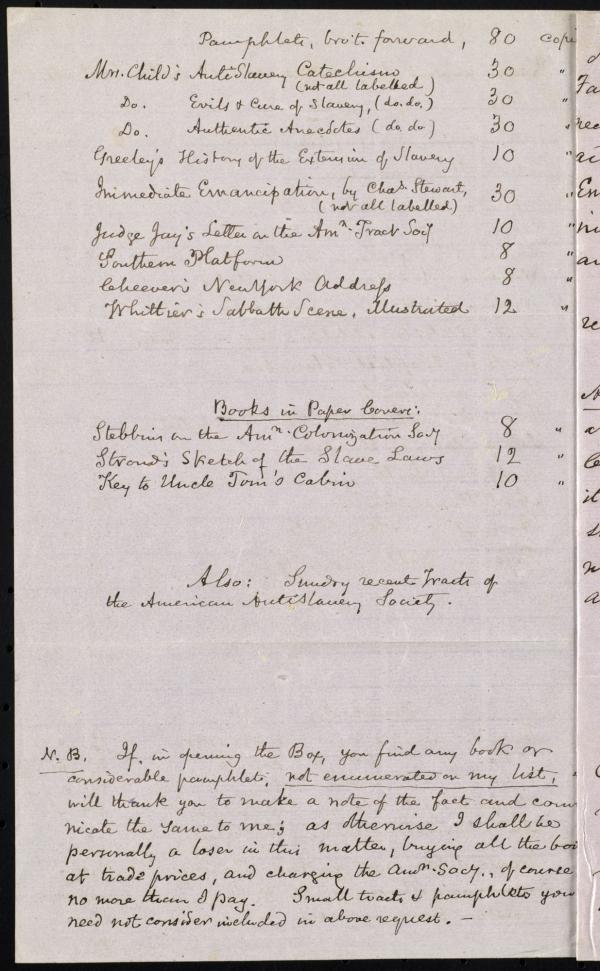 Pamphlets, bro't. forward, 80 copi
Mrs. Child's AntiSlavery Catechism 30 "
(not all labelled)
Do. Evils & Cure of Slavery, (do. do.) 30 "
Do. Authentic Anecdotes (do. do) 30 "
Greeley's History of the Extension of Slavery 10 "
Immediate Emancipation, by Chas. Stewart, 30 "
(not all labelled)
Judge Jay's Letter on the Amn. Tract Socy 10 "
Southern Platform 8 "
Cheever's New York Address 8 "
Whittier's Sabbath Scene, Illustrated 12 "
Books in Paper Covers:
Stebbins on the Amn. Colonization Socy 8 "
Stroud's Sketch of the Slave Laws 12 "
Key to Uncle Tom's Cabin 10 "
Also: Sundry recent Tracts of
the American AntiSlavery Society.
N. B. If, in opening the Box, you find any book or
considerable pamphlet, not enumerated on my list,
will thank you to make a note of the fact and com
nicate the same to me; as otherwise I shall be
personally a loser in this matter, buying all the boo
at trade prices, and charging the Amn. Socy., of course
no more than I pay. Small tracts & pamphlets you
need not consider included in above request. —